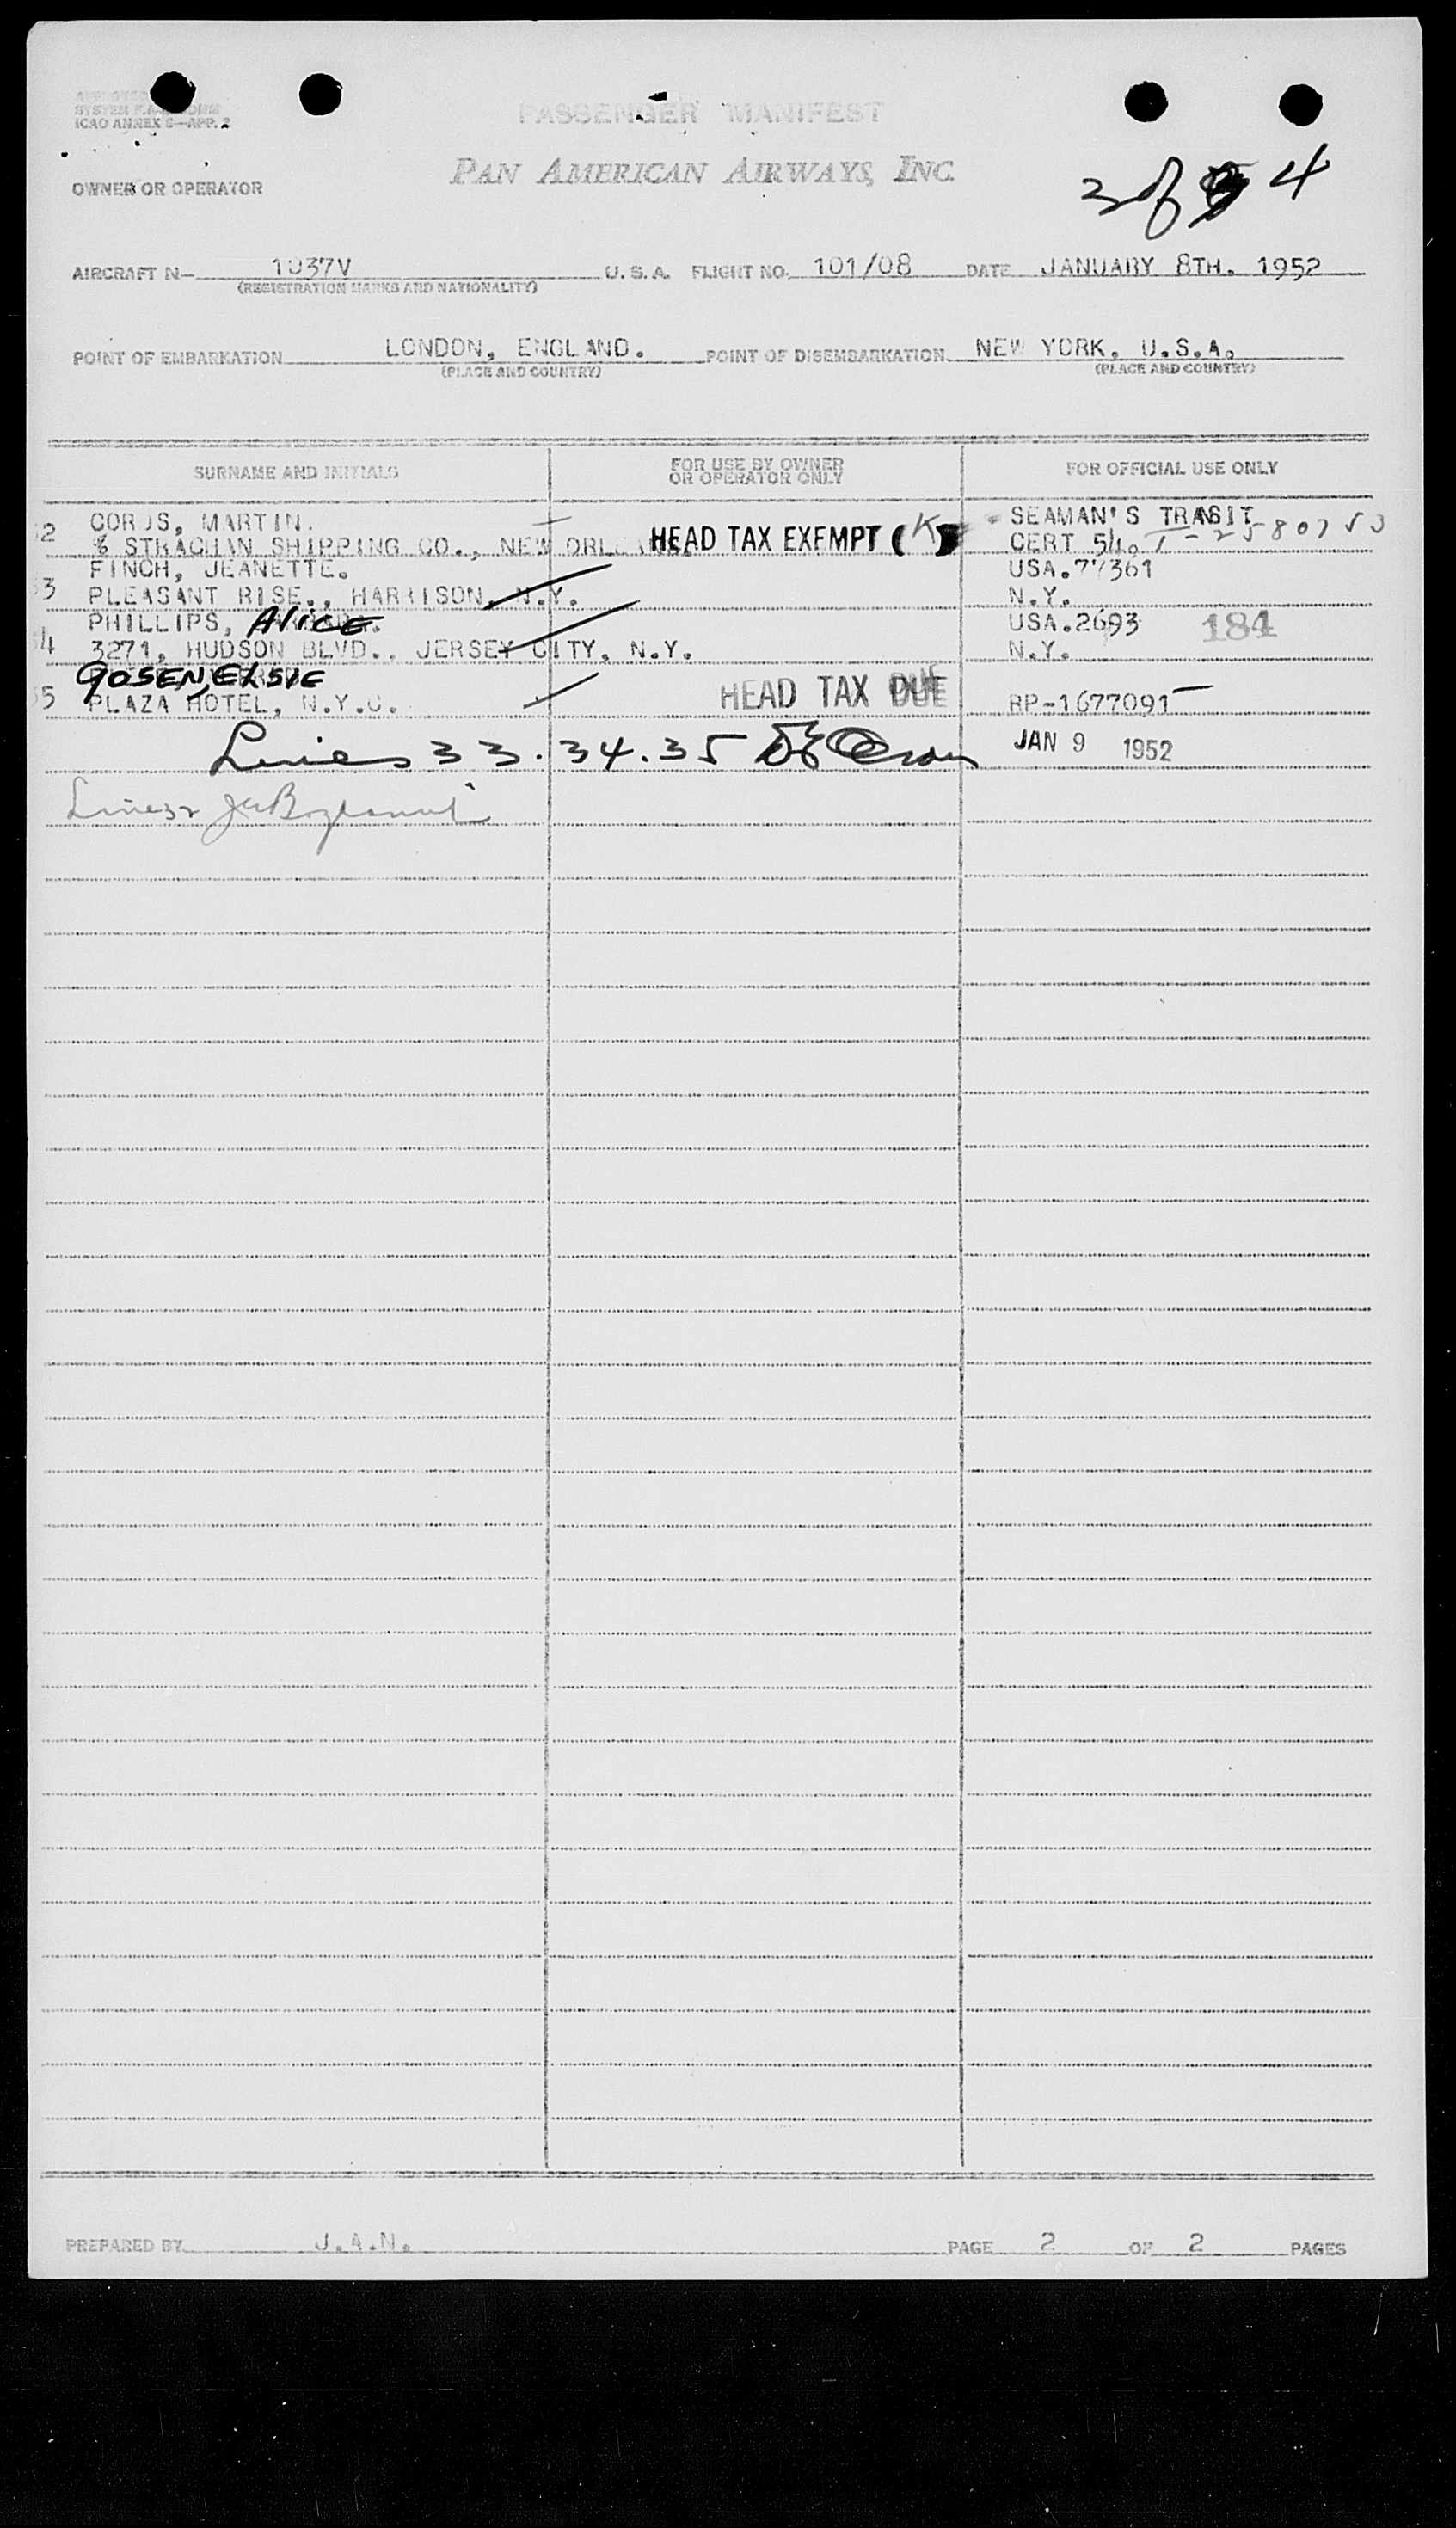 ICAO ANNEX 9—APP. 2
PASSENGER MANIFEST
PAN AMERICAN AIRWAYS, INC.
OWNER OR OPERATOR
2 of 4
AIRCRAFT N— 1037V U.S.A. FLIGHT NO. 101/08 DATE JANUARY 8TH. 1952
(REGISTRATION MARKS AND NATIONALITY)
POINT OF EMBARKATION LONDON, ENGLAND. POINT OF DISEMBARKATION NEW YORK, U.S.A.
(PLACE AND COUNTRY) (PLACE AND COUNTRY)
SURNAME AND INITIALS FOR USE BY OWNER OR OPERATOR ONLY FOR OFFICIAL USE ONLY
MARTIN. SEAMAN'S TRANSIT
2 % STRACHAN SHIPPING CO., NEW HEAD TAX EXEMPT (K) CERT
FINCH, JEANETTE. USA.77361
3 PLEASANT RISE., HARRISON, N.Y. N.Y.
PHILLIPS, ALICE USA.2693 184
4 3271, HUDSON BLVD., JERSEY CITY, N.Y. N.Y.
GOSEN, ELSIE
5 PLAZA HOTEL, N.Y.C. HEAD TAX DUE RP-1677091
Lines 33.34.35 JAN 9 1952
Line 32
PREPARED BY J.A.N. PAGE 2 OF 2 PAGES